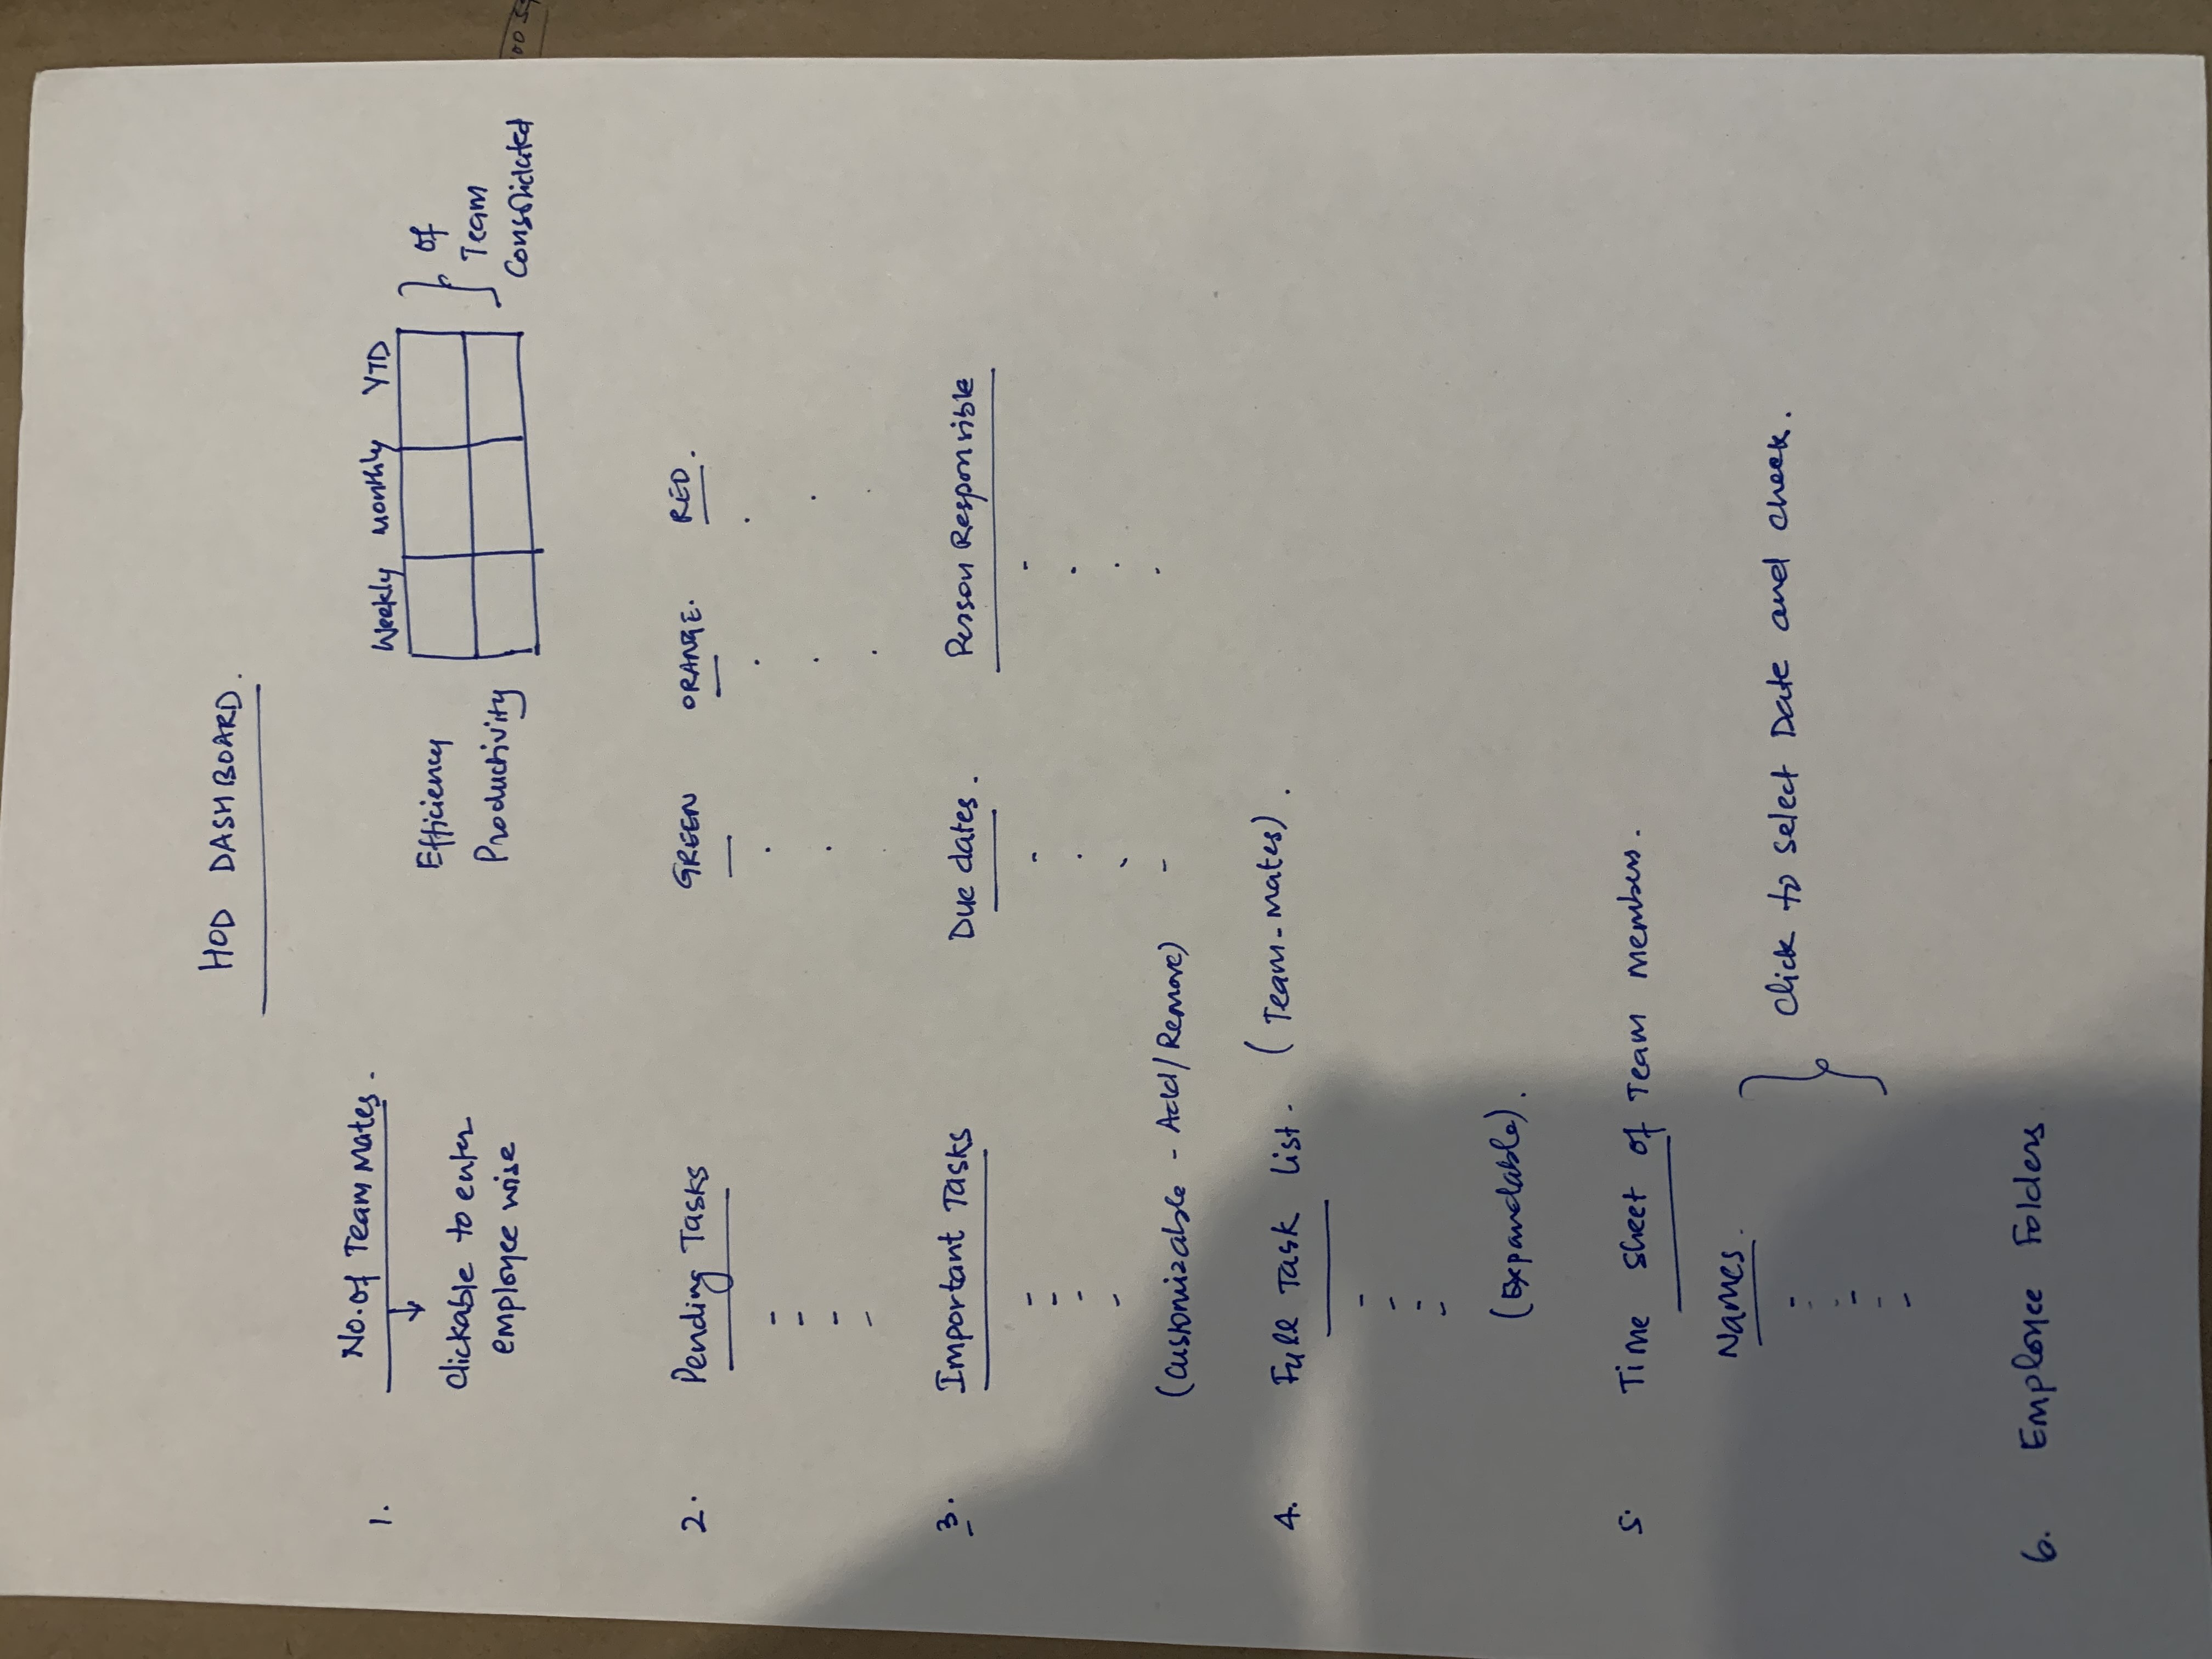 HOD DASHBOARD.
1. No. of Team Mates.
Clickable to enter
employee wise
Weekly Monthly YTD
Efficiency
Productivity
of
Team
Consolidated
2. Pending Tasks GREEN ORANGE. RED.
3. Important Tasks Due dates. Person Responsible
(Customizable - Add/Remove)
4. Full Task list. (Team-Mates).
(Expandable).
5. Time sheet of Team members.
Names.
Click to select Date and check.
6. Employee Folders